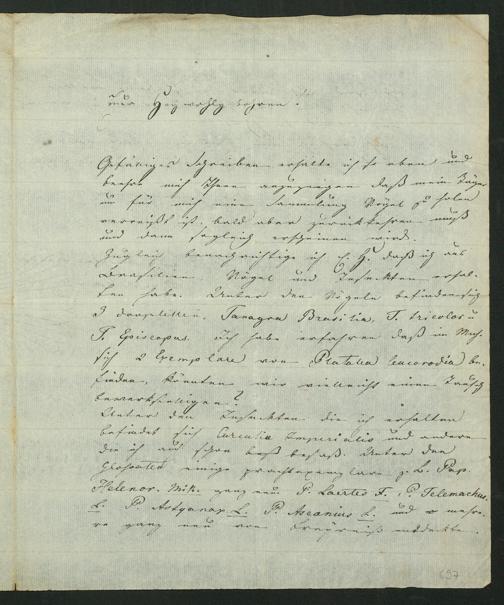 Euer Hochwohlgebohren!
Gefälliges Schreiben erhalte ich so eben und
beehre mich Ihnen anzuzeigen daß mein Jäger
um für mich eine Sammlung Vögel zu holen
verreißt ist, bald aber zurückkehren muß
und dann sogleich erscheinen wird.
Zugleich benachrichtige ich E. H. daß ich aus
Brasilien Vögel und Insekten erhal-
ten habe. Unter den Vögeln befinden sich
3 doupletten. Tanagra Brasilia, T. tricolor u
T. Episcopus. Ich habe erfahren daß im
sich 2 Exemplare von Platalea leucorodia be-
finden. Könnten wir vielleicht einen Tausch
bewerkstelligen?
Unter den Insekten die ich erhalten
befindet sich Curculio Imperialis und andere
die ich auch schon besaß. Unter den
einige prachtexemplare z. B. Pap.
Helenor. Mihi. ganz neu P. Laertes F. P. Telemachus.
L. P. L. P. Ascanius L. und mehre-
re ganz neu von entdeckte.
697